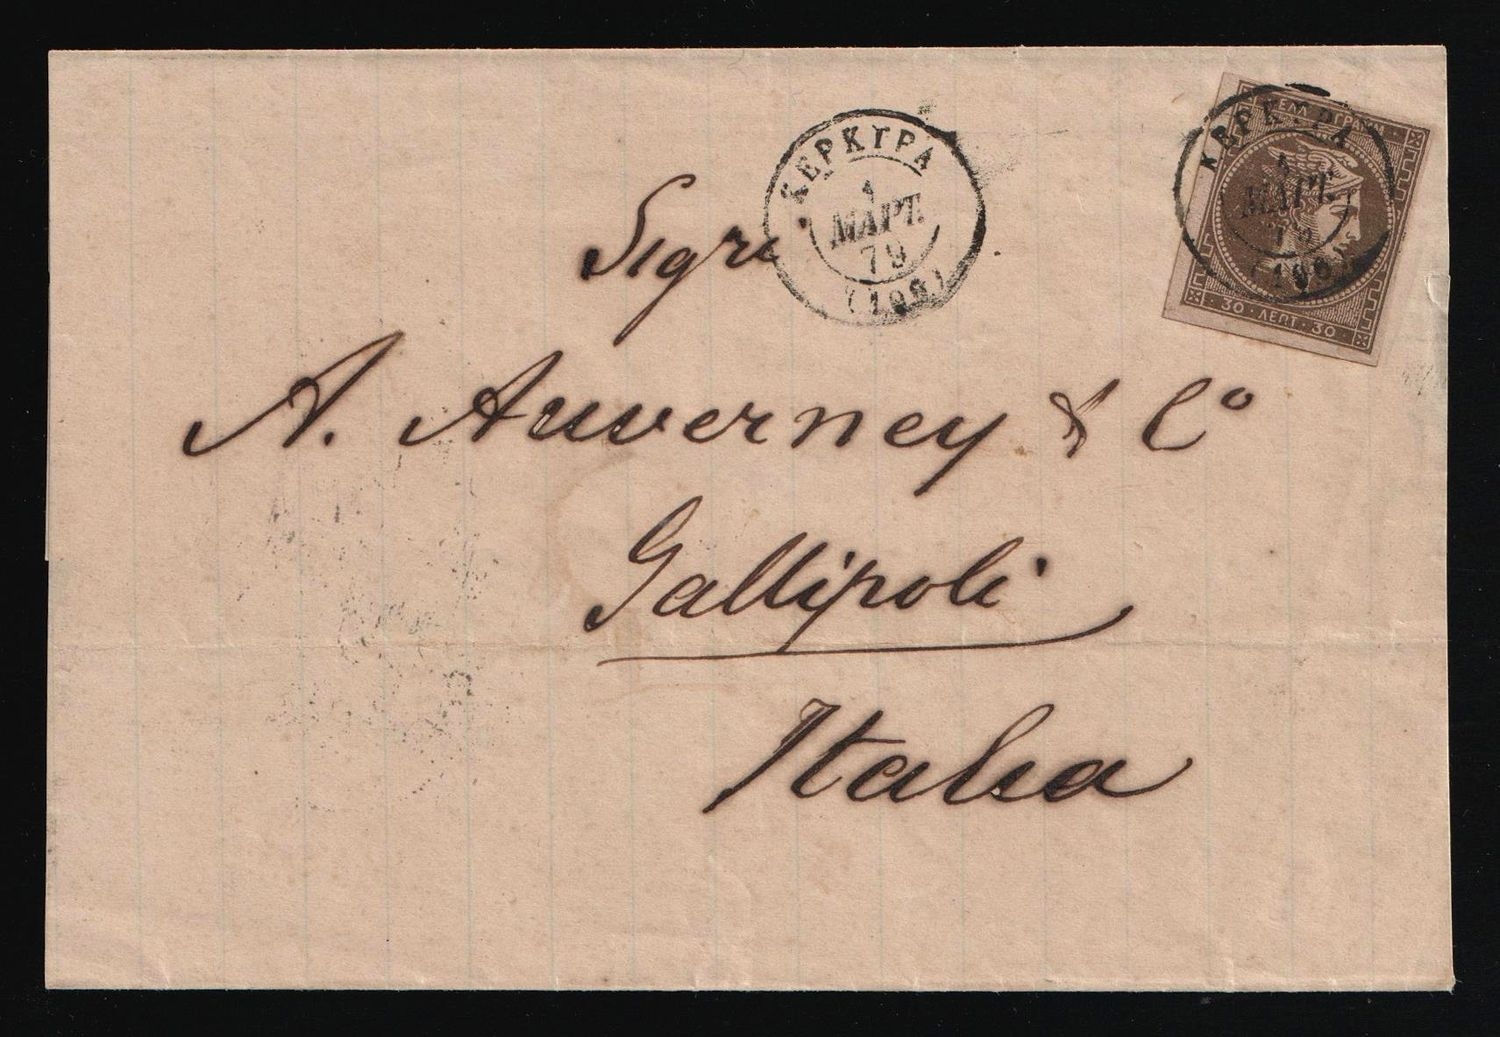 ΚΕΡΚΥΡΑ
1
ΜΑΡΤ.
79
(108)
ΚΕΡΚΥΡΑ
1
ΜΑΡΤ.
79
(108)
30 · ΛΕΠΤ · 30
Sigri
A. Auverney & Co
Gallipoli
Italia